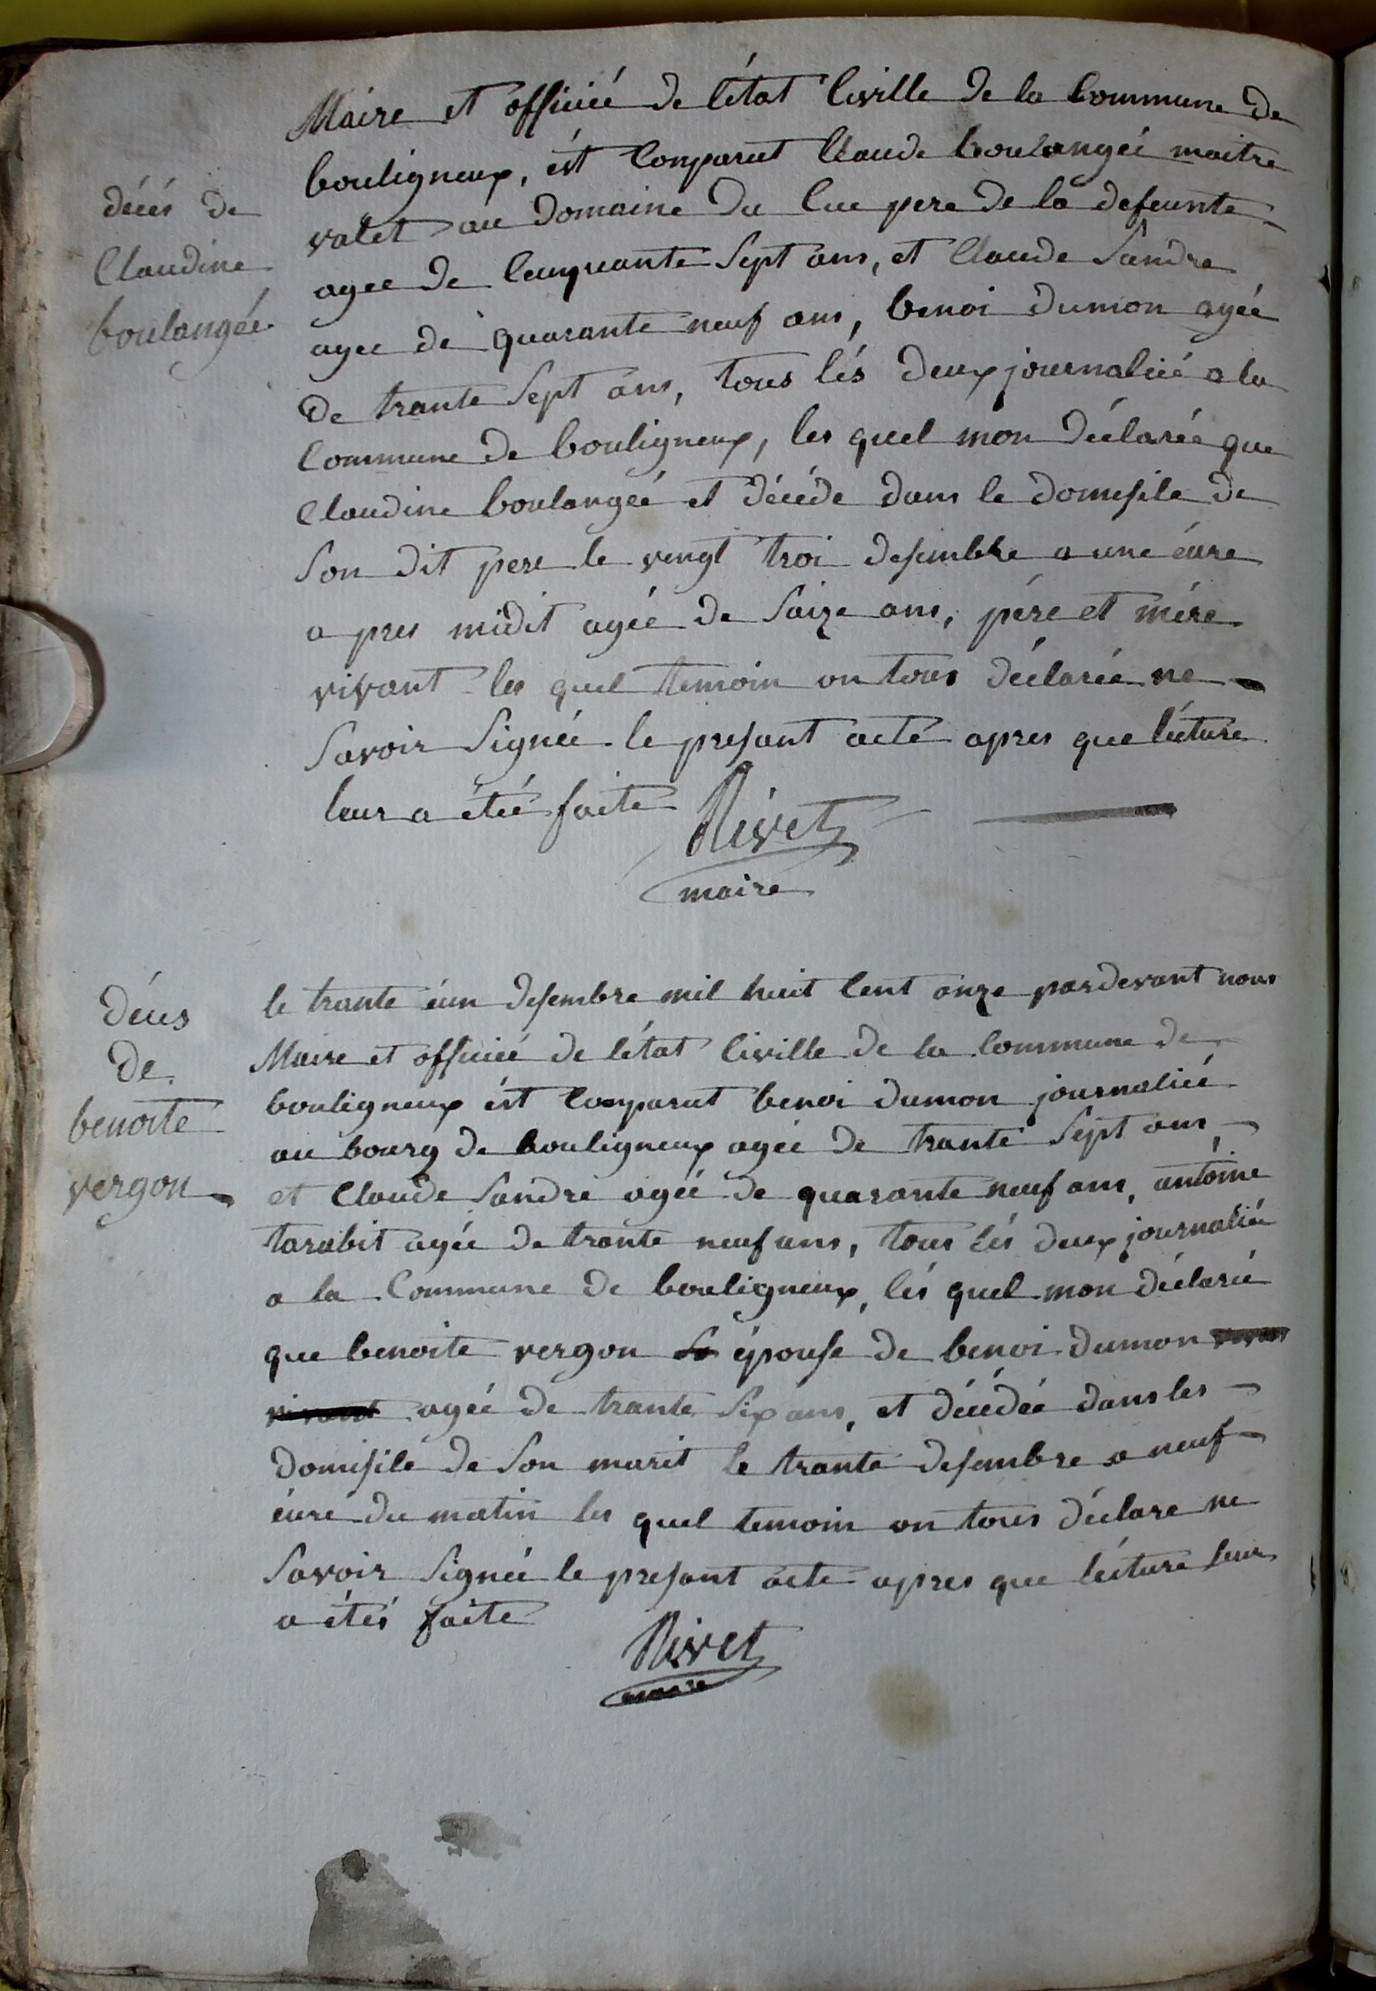 Maire et officié de létat Civille de la Commune de
bouligneux, ést Comparut Claude boulangéé maitre
valet au Domaine du Cue pere de la defeunte
agee de Cenquante Sept ans, et Claude Sandre
agee de quarante neuf ans, benoi dumon agéé
de trante Sept ans, tous lés deux journaliié a la
Commune de bouligneux, les quel mon déclaréé que
Claudine boulangéé et décéde dans le domesile de
Son dit pere le vengt troi desembre a une éure
a pres midit agéé de Saize ans, pére et mére
vivant les quel temoin on tous déclaréé ne
Savoir Signéé le presant acte apres que lécture
leur a étéé faite
Rivet
maire
décés de
Claudine
boulangéé
le trante éun desembre mil huit Cent onze pardevant nous
Maire et officiéé de létat Civille de la Commune de
bouligneux ést Comparut benoi dumon journaliéé
au bourg de bouligneux agéé de trante Sept ans
et Claude Sandre agéé de quarante neuf ans, antoine
tarabit agéé de trante neuf ans, tous lés deux journaliéé
a la Commune de bouligneux, lés quel mon déclaréé
que benoite vergon épouse de benoi dumon
agéé de trante Six ans, et décédéé dans les
domisile de Son marit le trante desembre a neuf
éure du matin les quel temoin on tous déclare ne
Savoir Signéé le presant acte apres que lécture leur
a étés faite
Rivet
maire
décés
de
benoite
vergon